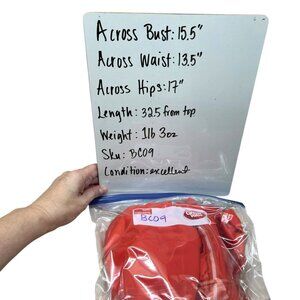 Across Bust: 15.5"
Across Waist: 13.5"
Across Hips: 17"
Length: 32.5 from top
Weight: 1lb 3oz
Sku: BC09
Condition: excellent
BC09